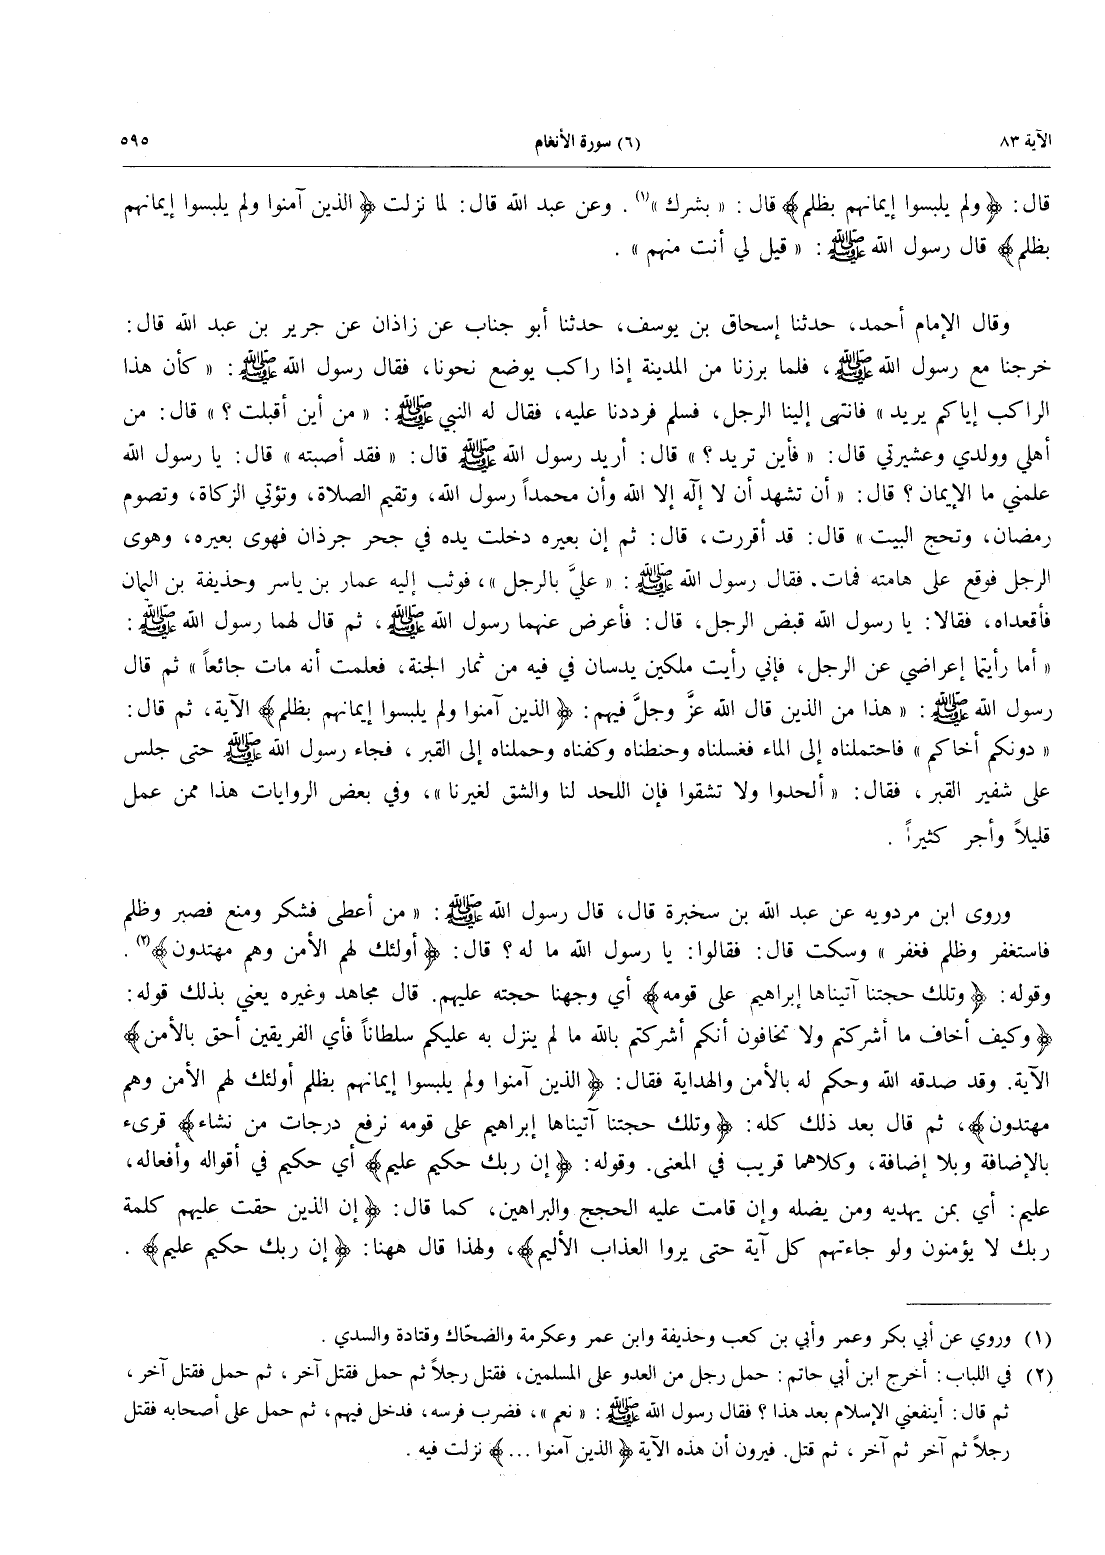 الآية ٨٣ (٦) سورة الأنعام ٥٩٥
قال: ﴿ولم يلبسوا إيمانهم بظلم﴾ قال: « بشرك »(١). وعن عبد الله قال: لما نزلت ﴿ الذين آمنوا ولم يلبسوا إيمانهم
بظلم﴾ قال رسول الله ﷺ: « قيل لي أنت منهم » .
وقال الإمام أحمد، حدثنا إسحاق بن يوسف، حدثنا أبو جناب عن زاذان عن جرير بن عبد الله قال:
خرجنا مع رسول الله ﷺ، فلما برزنا من المدينة إذا راكب يوضع نحونا، فقال رسول الله ﷺ: « كأن هذا
الراكب إياكم يريد » فانتهى إلينا الرجل، فسلم فرددنا عليه، فقال له النبي ﷺ: « من أين أقبلت ؟ » قال: من
أهلي وولدي وعشيرتي قال: « فأين تريد ؟ » قال: أريد رسول الله ﷺ قال: « فقد أصبته » قال: يا رسول الله
علمني ما الإيمان ؟ قال: « أن تشهد أن لا إلٰه إلا الله وأن محمداً رسول الله، وتقيم الصلاة، وتؤتي الزكاة، وتصوم
رمضان، وتحج البيت » قال: قد أقررت، قال: ثم إن بعيره دخلت يده في جحر جرذان فهوى بعيره، وهوى
الرجل فوقع على هامته فمات. فقال رسول الله ﷺ: « عليَّ بالرجل »، فوثب إليه عمار بن ياسر وحذيفة بن اليمان
فأقعداه، فقالا: يا رسول الله قبض الرجل، قال: فأعرض عنهما رسول الله ﷺ، ثم قال لهما رسول الله ﷺ:
« أما رأيتما إعراضي عن الرجل، فإني رأيت ملكين يدسان في فيه من ثمار الجنة، فعلمت أنه مات جائعاً » ثم قال
رسول الله ﷺ: « هذا من الذين قال الله عزَّ وجلَّ فيهم: ﴿ الذين آمنوا ولم يلبسوا إيمانهم بظلم﴾ الآية، ثم قال:
« دونكم أخاكم » فاحتملناه إلى الماء فغسلناه وحنطناه وكفناه وحملناه إلى القبر ، فجاء رسول الله ﷺ حتى جلس
على شفير القبر ، فقال: « ألحدوا ولا تشقوا فإن اللحد لنا والشق لغيرنا »، وفي بعض الروايات هذا ممن عمل
قليلاً وأجر كثيراً .
وروى ابن مردويه عن عبد الله بن سخبرة قال، قال رسول الله ﷺ: « من أعطى فشكر ومنع فصبر وظلم
فاستغفر وظلم فغفر » وسكت قال: فقالوا: يا رسول الله ما له ؟ قال: ﴿ أولئك لهم الأمن وهم مهتدون﴾(٢).
وقوله: ﴿ وتلك حجتنا آتيناها إبراهيم على قومه﴾ أي وجهنا حجته عليهم. قال مجاهد وغيره يعني بذلك قوله:
﴿ وكيف أخاف ما أشركتم ولا تخافون أنكم أشركتم بالله ما لم ينزل به عليكم سلطاناً فأي الفريقين أحق بالأمن﴾
الآية. وقد صدقه الله وحكم له بالأمن والهداية فقال: ﴿ الذين آمنوا ولم يلبسوا إيمانهم بظلم أولئك لهم الأمن وهم
مهتدون﴾، ثم قال بعد ذلك كله: ﴿وتلك حجتنا آتيناها إبراهيم على قومه نرفع درجات من نشاء﴾ قرىء
بالإضافة وبلا إضافة، وكلاهما قريب في المعنى. وقوله: ﴿ إن ربك حكيم عليم﴾ أي حكيم في أقواله وأفعاله،
عليم: أي بمن يهديه ومن يضله وإن قامت عليه الحجج والبراهين، كما قال: ﴿ إن الذين حقت عليهم كلمة
ربك لا يؤمنون ولو جاءتهم كل آية حتى يروا العذاب الأليم﴾، ولهذا قال ههنا: ﴿ إن ربك حكيم عليم﴾ .
(١) وروي عن أبي بكر وعمر وأبي بن كعب وحذيفة وابن عمر وعكرمة والضحّاك وقتادة والسدي .
(٢) في اللباب: أخرج ابن أبي حاتم: حمل رجل من العدو على المسلمين، فقتل رجلاً ثم حمل فقتل آخر ، ثم حمل فقتل آخر ،
ثم قال: أينفعني الإسلام بعد هذا ؟ فقال رسول الله ﷺ: « نعم »، فضرب فرسه، فدخل فيهم، ثم حمل على أصحابه فقتل
رجلاً ثم آخر ثم آخر ، ثم قتل. فيرون أن هذه الآية ﴿ الذين آمنوا ...﴾ نزلت فيه .